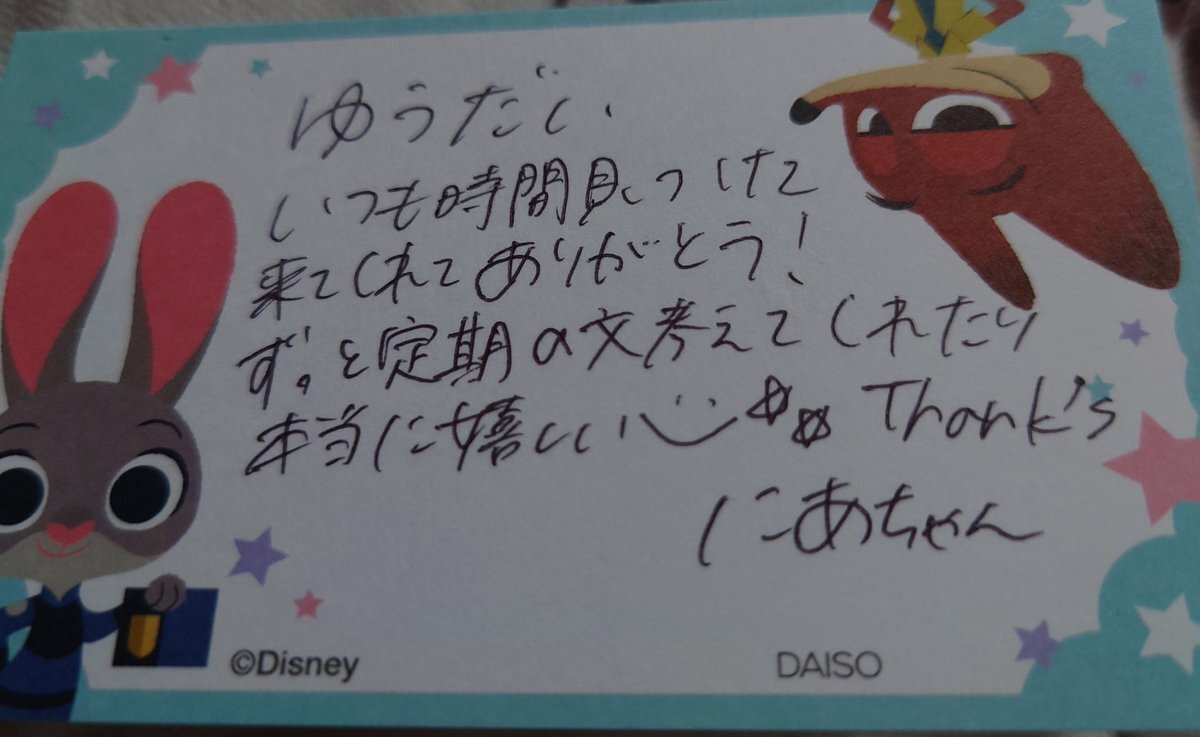 ゆうだい
いつも時間見つけて
来てくれてありがとう!
ずっと定期の文考えてくれたり
本当に嬉しい Thank's
にあちゃん
©Disney
DAISO